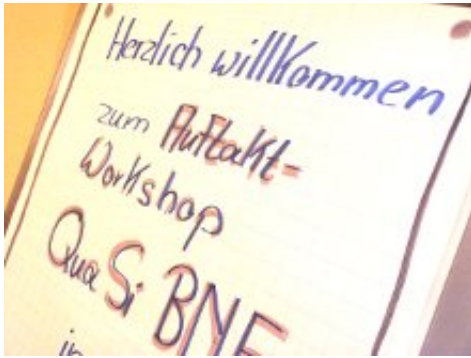 Herzlich willkommen
zum Auftakt-
Workshop
QuaSi BNE
in